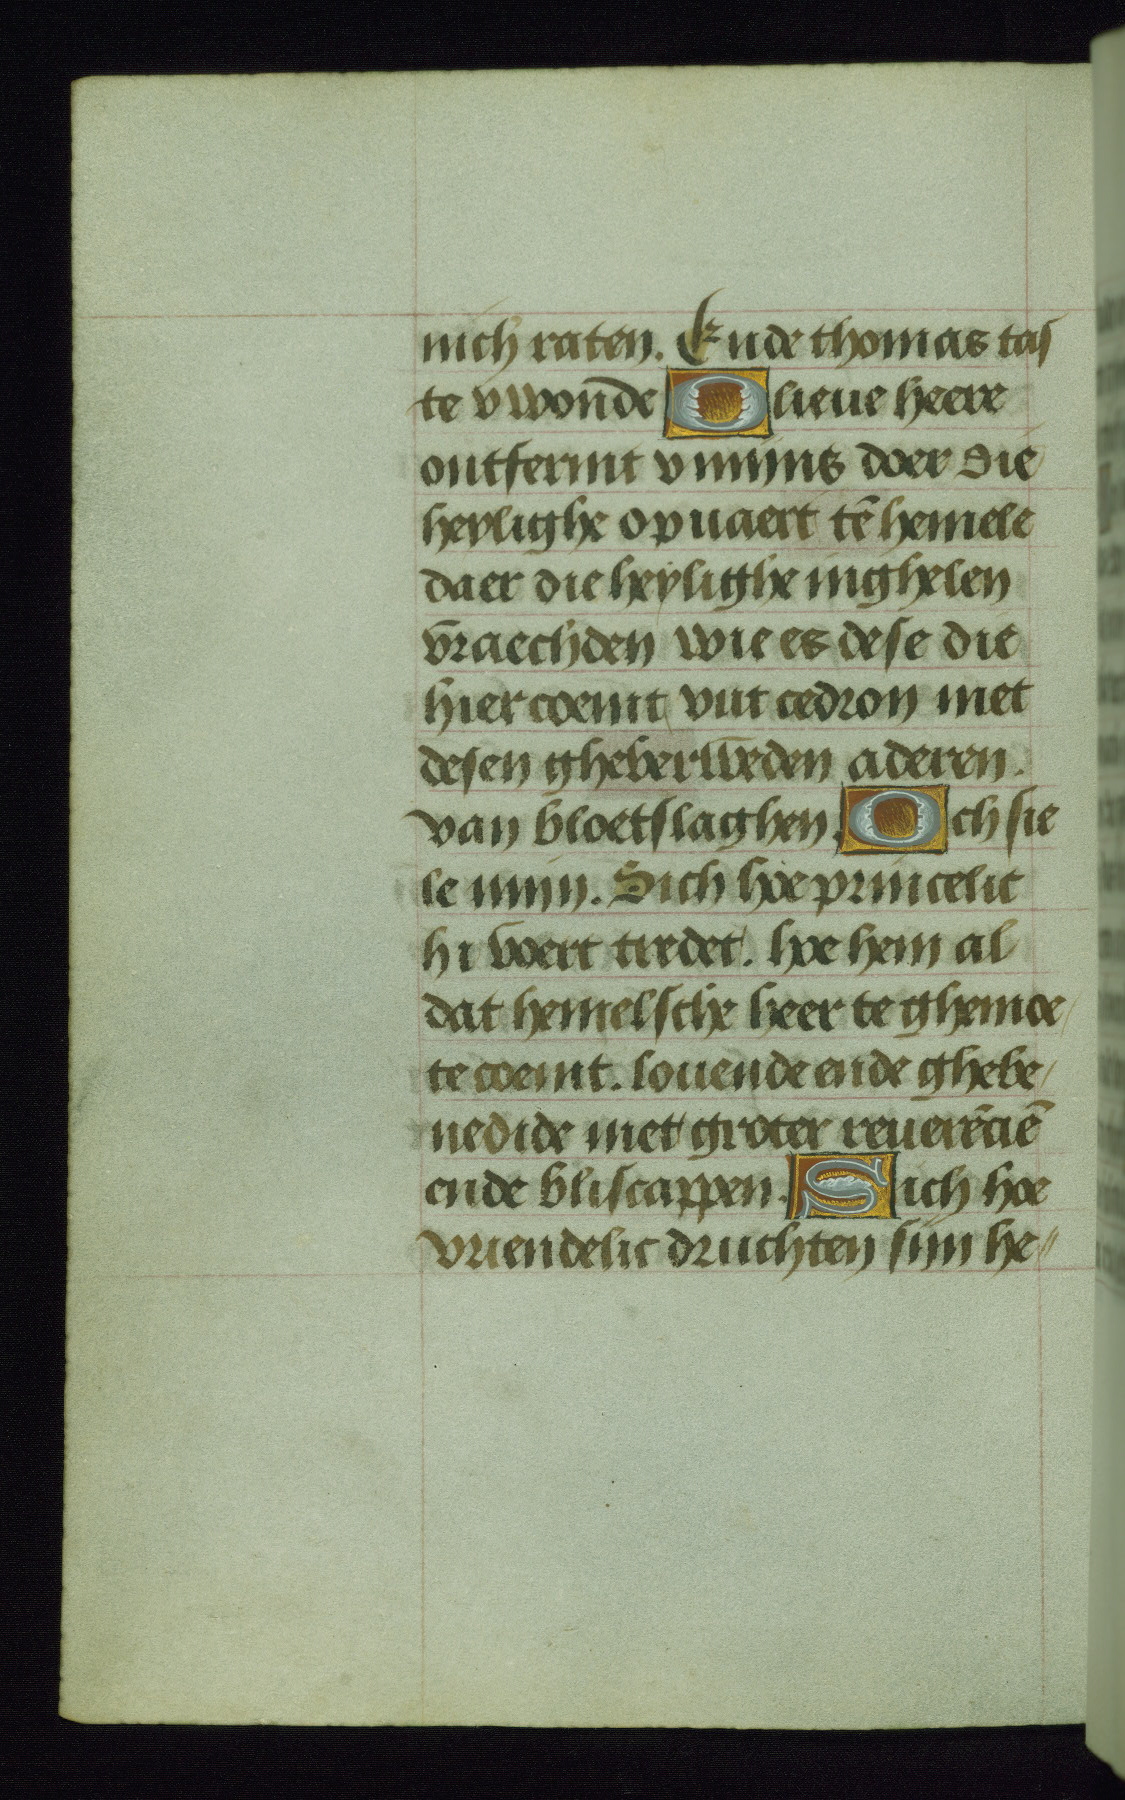 nich raten. Ende thomas tas
te v wonde O lieue heere
ontfermt v mijns doer die
heylighe opuaert tē hemele
daer die heylighe inghelen
vraechden wie es dese die
hier coemt vut cedron met
desen gheverweden aderen.
van bloetslaghen. Och sie
le mijn. Sich hoe princelic
hi voert tredet. hoe hem al
dat hemelsche heer te ghemoe
te coemt. louende ende ghebe
nedide met groter reuerēciē
ende bliscappen. Sich hoe
vriendelic druchten sijn he